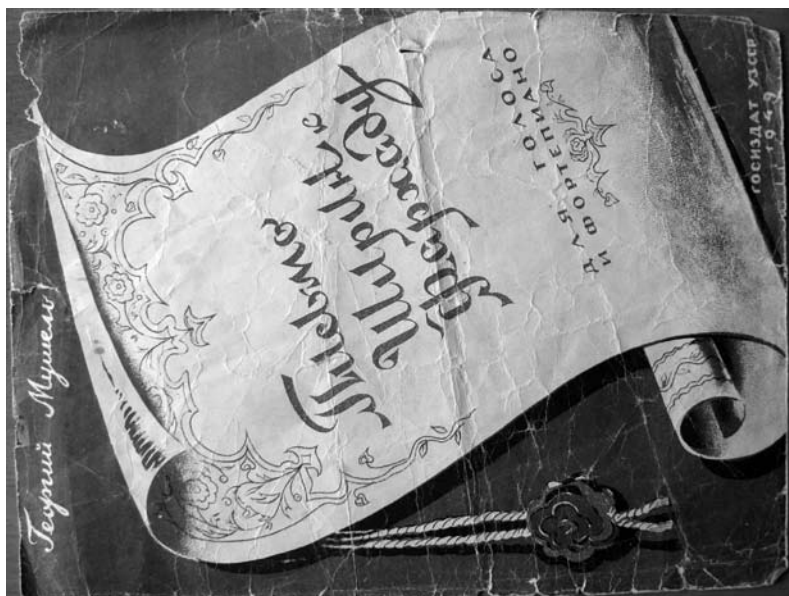 Георгий Мушель
Письмо
Ширин к
Фархаду
ДЛЯ ГОЛОСА
И ФОРТЕПИАНО
ГОСИЗДАТ УЗССР
1949